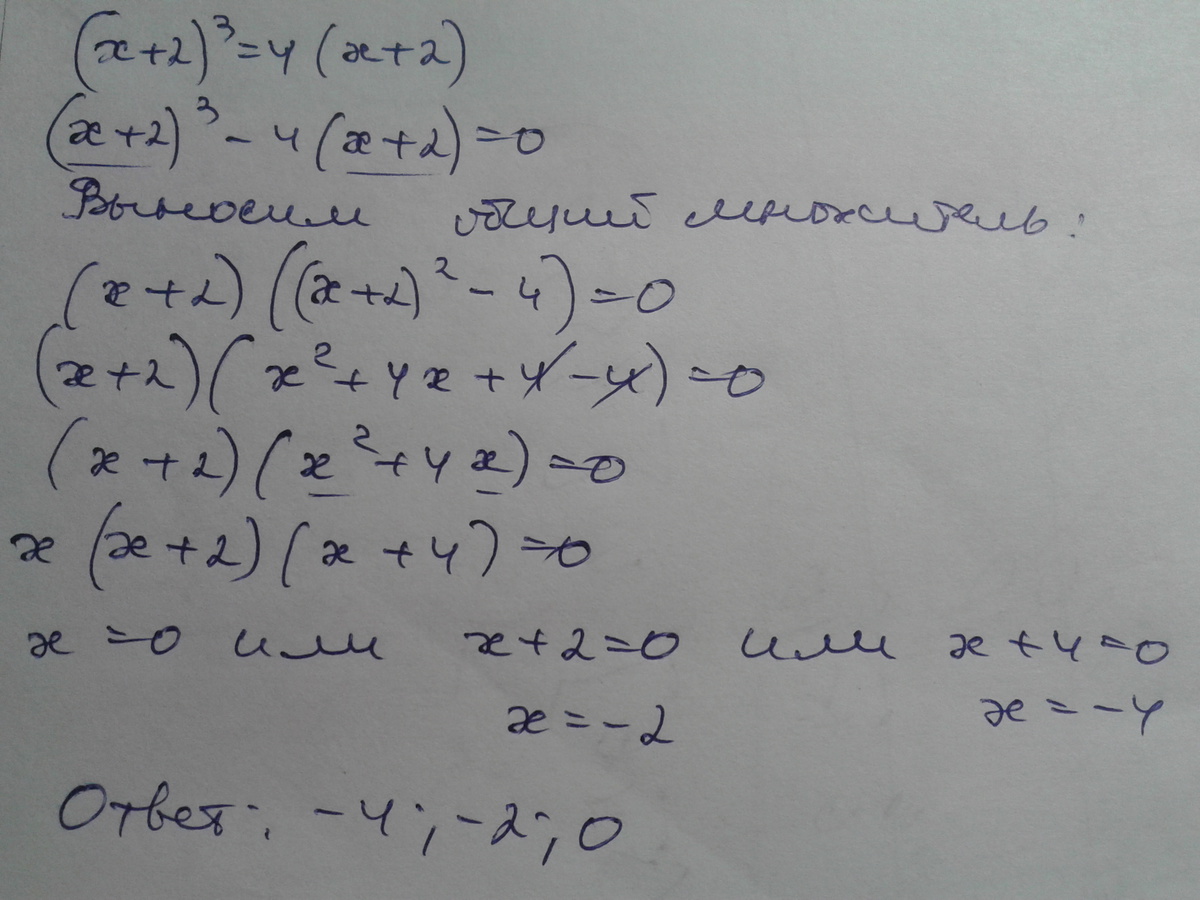 (x+2)³=4(x+2)
(x+2)³-4(x+2)=0
Выносим общий множитель:
(x+2)((x+2)²-4)=0
(x+2)(x²+4x+4-4)=0
(x+2)(x²+4x)=0
x(x+2)(x+4)=0
x=0 или x+2=0 или x+4=0
x=-2 x=-4
Ответ: -4; -2; 0